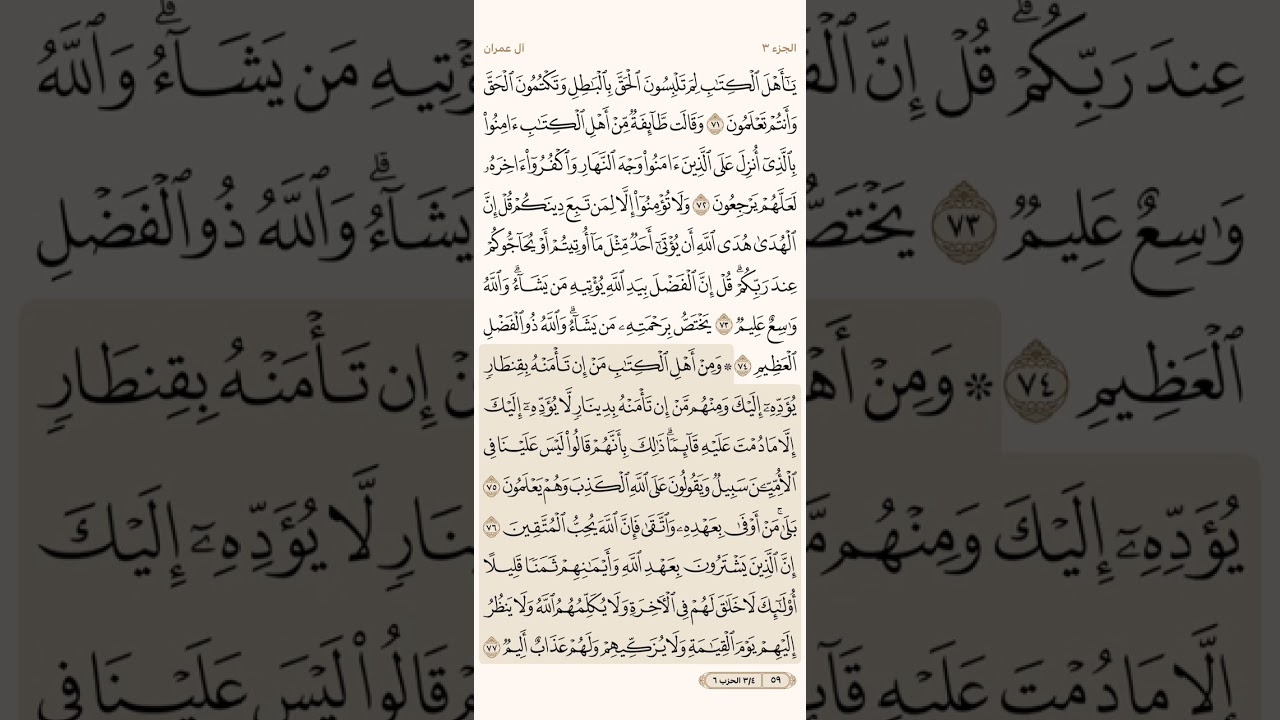 الجزء ٣
آل عمران
يَـٰٓأَهْلَ ٱلْكِتَـٰبِ لِمَ تَلْبِسُونَ ٱلْحَقَّ بِٱلْبَـٰطِلِ وَتَكْتُمُونَ ٱلْحَقَّ
وَأَنتُمْ تَعْلَمُونَ ٧١ وَقَالَت طَّآئِفَةٌ مِّنْ أَهْلِ ٱلْكِتَـٰبِ ءَامِنُوا۟
بِٱلَّذِىٓ أُنزِلَ عَلَى ٱلَّذِينَ ءَامَنُوا۟ وَجْهَ ٱلنَّهَارِ وَٱكْفُرُوٓا۟ ءَاخِرَهُۥ
لَعَلَّهُمْ يَرْجِعُونَ ٧٢ وَلَا تُؤْمِنُوٓا۟ إِلَّا لِمَن تَبِعَ دِينَكُمْ قُلْ إِنَّ
ٱلْهُدَىٰ هُدَى ٱللَّهِ أَن يُؤْتَىٰٓ أَحَدٌ مِّثْلَ مَآ أُوتِيتُمْ أَوْ يُحَآجُّوكُمْ
عِندَ رَبِّكُمْ ۗ قُلْ إِنَّ ٱلْفَضْلَ بِيَدِ ٱللَّهِ يُؤْتِيهِ مَن يَشَآءُ ۗ وَٱللَّهُ
وَٰسِعٌ عَلِيمٌ ٧٣ يَخْتَصُّ بِرَحْمَتِهِۦ مَن يَشَآءُ ۗ وَٱللَّهُ ذُو ٱلْفَضْلِ
ٱلْعَظِيمِ ٧٤ ۞ وَمِنْ أَهْلِ ٱلْكِتَـٰبِ مَنْ إِن تَأْمَنْهُ بِقِنطَارٍ
يُؤَدِّهِۦٓ إِلَيْكَ وَمِنْهُم مَّنْ إِن تَأْمَنْهُ بِدِينَارٍ لَّا يُؤَدِّهِۦٓ إِلَيْكَ
إِلَّا مَا دُمْتَ عَلَيْهِ قَآئِمًا ۗ ذَٰلِكَ بِأَنَّهُمْ قَالُوا۟ لَيْسَ عَلَيْنَا فِى
ٱلْأُمِّيِّـۧنَ سَبِيلٌ وَيَقُولُونَ عَلَى ٱللَّهِ ٱلْكَذِبَ وَهُمْ يَعْلَمُونَ ٧٥
بَلَىٰ مَنْ أَوْفَىٰ بِعَهْدِهِۦ وَٱتَّقَىٰ فَإِنَّ ٱللَّهَ يُحِبُّ ٱلْمُتَّقِينَ ٧٦
إِنَّ ٱلَّذِينَ يَشْتَرُونَ بِعَهْدِ ٱللَّهِ وَأَيْمَـٰنِهِمْ ثَمَنًا قَلِيلًا
أُو۟لَـٰٓئِكَ لَا خَلَـٰقَ لَهُمْ فِى ٱلْـَٔاخِرَةِ وَلَا يُكَلِّمُهُمُ ٱللَّهُ وَلَا يَنظُرُ
إِلَيْهِمْ يَوْمَ ٱلْقِيَـٰمَةِ وَلَا يُزَكِّيهِمْ وَلَهُمْ عَذَابٌ أَلِيمٌ ٧٧
٥٩ ٣/٤ الحزب ٦